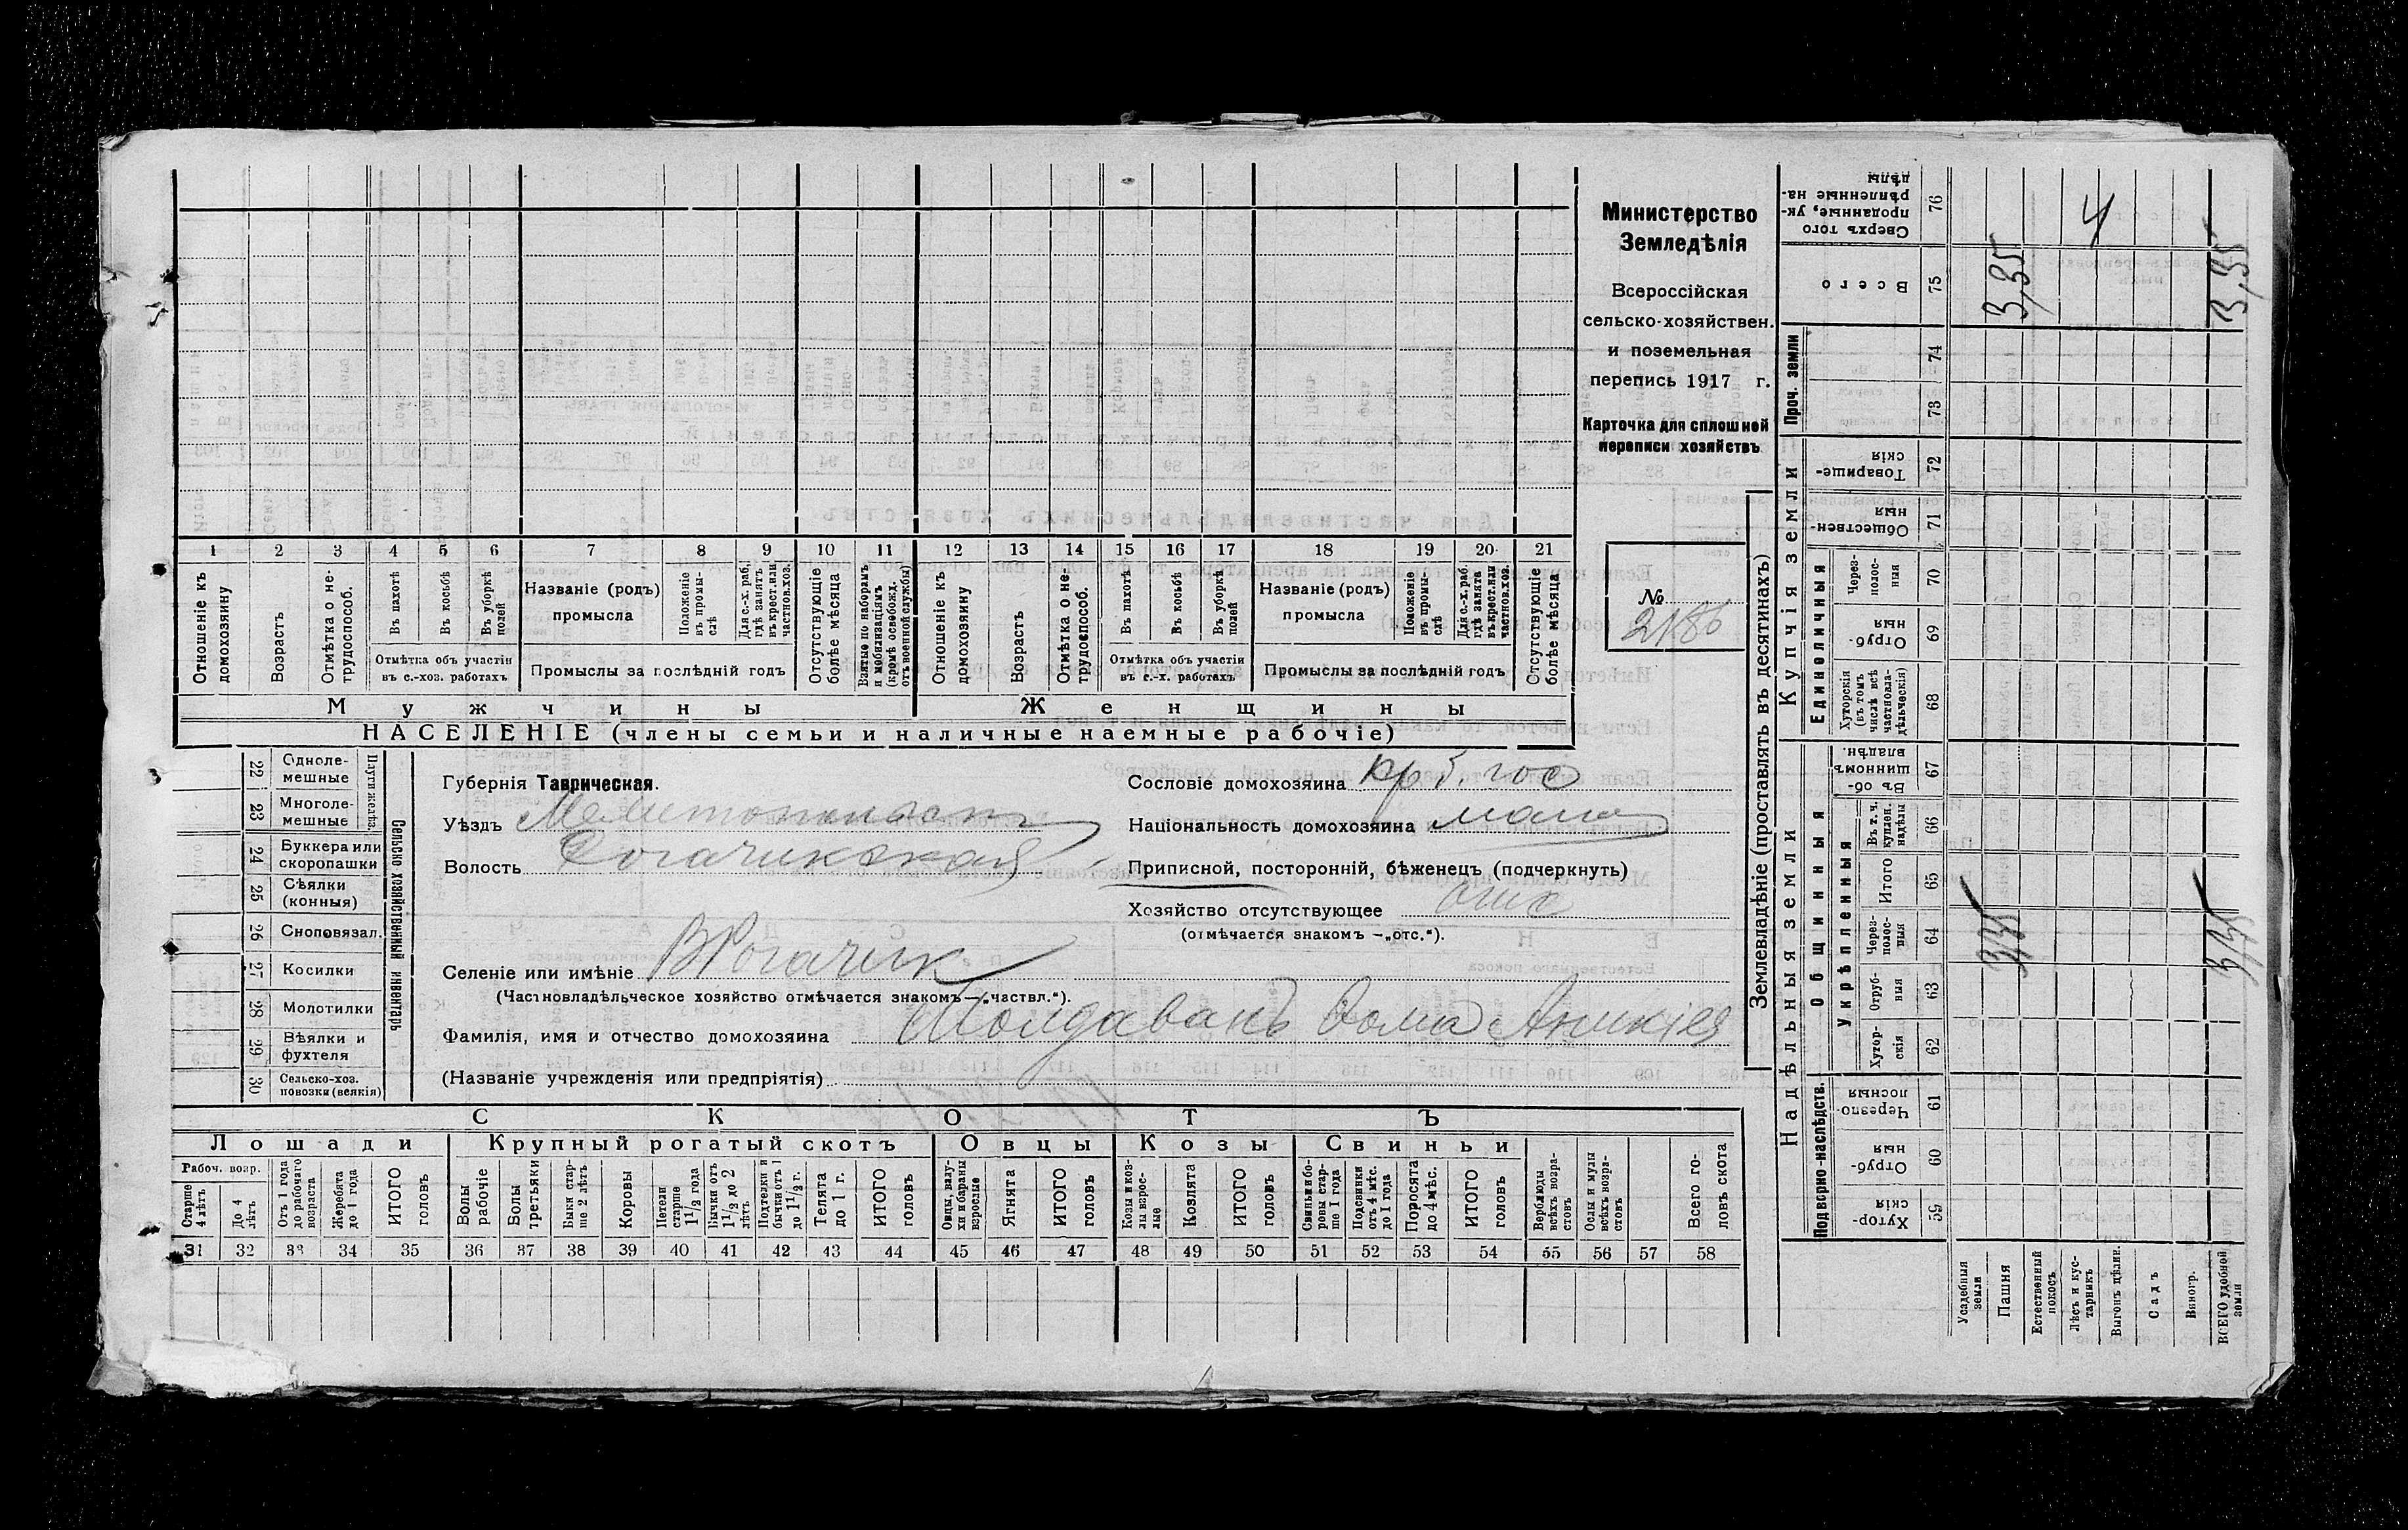 Министерство
Земледѣлія
Всероссійская
сельско-хозяйствен.
и поземельная
перепись 1917 г.
Карточка для сплошной
переписи хозяйствъ
№
2186
1 2 3 4 5 6 7 8 9 10 11 12 13 14 15 16 17 18 19 20 21
Отношеніе къ домохозяину
Возрастъ
Отмѣтка о не-трудоспособ.
Въ пахотѣ
Въ косьбѣ
Въ уборкѣ полей
Отмѣтка объ участіи въ с.-хоз. работахъ
Названіе (родъ) промысла
Положеніе въ промы-слѣ
Для с.-х. раб., гдѣ занятъ въ крест. или частнов. хоз.
Промыслы за послѣдній годъ
Отсутствующіе болѣе мѣсяца
Взятые по наборамъ и мобилизаціямъ (кромѣ освобожд. отъ военной службы)
Отношеніе къ домохозяину
Возрастъ
Отмѣтка о не-трудоспособ.
Въ пахотѣ
Въ косьбѣ
Въ уборкѣ полей
Отмѣтка объ участіи въ с.-х. работахъ
Названіе (родъ) промысла
Положеніе въ промы-слѣ
Для с.-х. раб. гдѣ занята въ крест. или частнов. хоз.
Промыслы за послѣдній годъ
Отсутствующіе болѣе мѣсяца
Мужчины Женщины
НАСЕЛЕНІЕ (члены семьи и наличные наемные рабочіе)
22 Одноле-мешные
23 Многоле-мешные
Плуги желѣз.
24 Буккера или скоропашки
25 Сѣялки (конныя)
26 Сноповязал.
27 Косилки
28 Молотилки
29 Вѣялки и фухтеля
30 Сельско-хоз. повозки (всякія)
Сельско хозяйственный инвентарь
Губернія Таврическая.
Уѣздъ
Волость Рогачикская
Селеніе или имѣніе ВРогачик
(Частновладѣльческое хозяйство отмѣчается знакомъ—„частвл.“).
Фамилія, имя и отчество домохозяина Молдаванъ Фома
(Названіе учрежденія или предпріятія)
Сословіе домохозяина
Національность домохозяина
Приписной, посторонній, бѣженецъ (подчеркнуть)
Хозяйство отсутствующее
(отмѣчается знакомъ —„отс.“).
СКОТЪ
Лошади Крупный рогатый скотъ Овцы Козы Свиньи
Рабоч. возр.
Старше 4 лѣтъ
До 4 лѣтъ
Отъ 1 года до рабочаго возраста
Жеребята до 1 года
ИТОГО головъ
Волы рабочіе
Волы третьяки
Быки стар-ше 2 лѣтъ
Коровы
Нетели старше 1 1/2 года
Бычки отъ 1 1/2 до 2 лѣтъ
Подтелки и бычки отъ 1 до 1 1/2 г.
Телята до 1 г.
ИТОГО головъ
Овцы, валу-хи и бараны взрослые
Ягнята
ИТОГО головъ
Козы и коз-лы взрос-лые
Козлята
ИТОГО головъ
Свиньи и бо-ровы стар-ше 1 года
Подсвинки отъ 4 мѣс. до 1 года
Поросята до 4 мѣс.
ИТОГО головъ
Верблюды всѣхъ возра-стовъ
Ослы и мулы всѣхъ возра-стовъ
Всего го-ловъ скота
31 32 33 34 35 36 37 38 39 40 41 42 43 44 45 46 47 48 49 50 51 52 53 54 55 56 57 58
Землевладѣніе (проставлять въ десятинахъ)
Надѣльныя земли
Купчія земли
Проч. земли
Подворно-наслѣдств.
Общинныя
Укрѣпленныя
Единоличныя
Хутор-скія 59
Отруб-ныя 60
Черезпо-лосныя 61
Хутор-скія 62
Отруб-ныя 63
Через-полос-ныя 64
Итого 65
Въ т. ч. куплен. надѣлы 66
Въ об-щинномъ владѣн. 67
Хуторскія (въ томъ числѣ всѣ частновла-дѣльческія) 68
Отруб-ныя 69
Через-полос-ныя 70
Обществен-ныя 71
Товарище-скія 72
73
74
Всего 75
Сверхъ того проданные, ук-рѣпленные на-дѣлы 76
Усадебныя земли
Пашня 3,35
Естественный покосъ
Лѣсъ и кус-тарникъ
Выгонъ цѣлин. 4
Садъ
Виногр.
ВСЕГО удобной земли 3,35